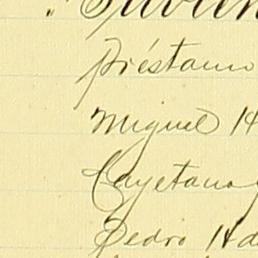 Préstamo
Miguel H
Cayetano
Pedro H d